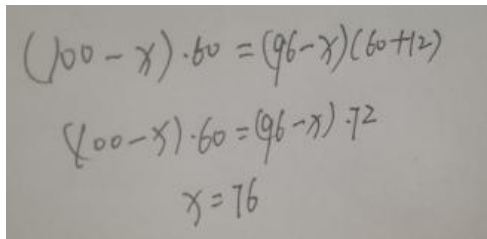 (100-x)·60=(96-x)(60+12)
(100-x)·60=(96-x)·72
x=76